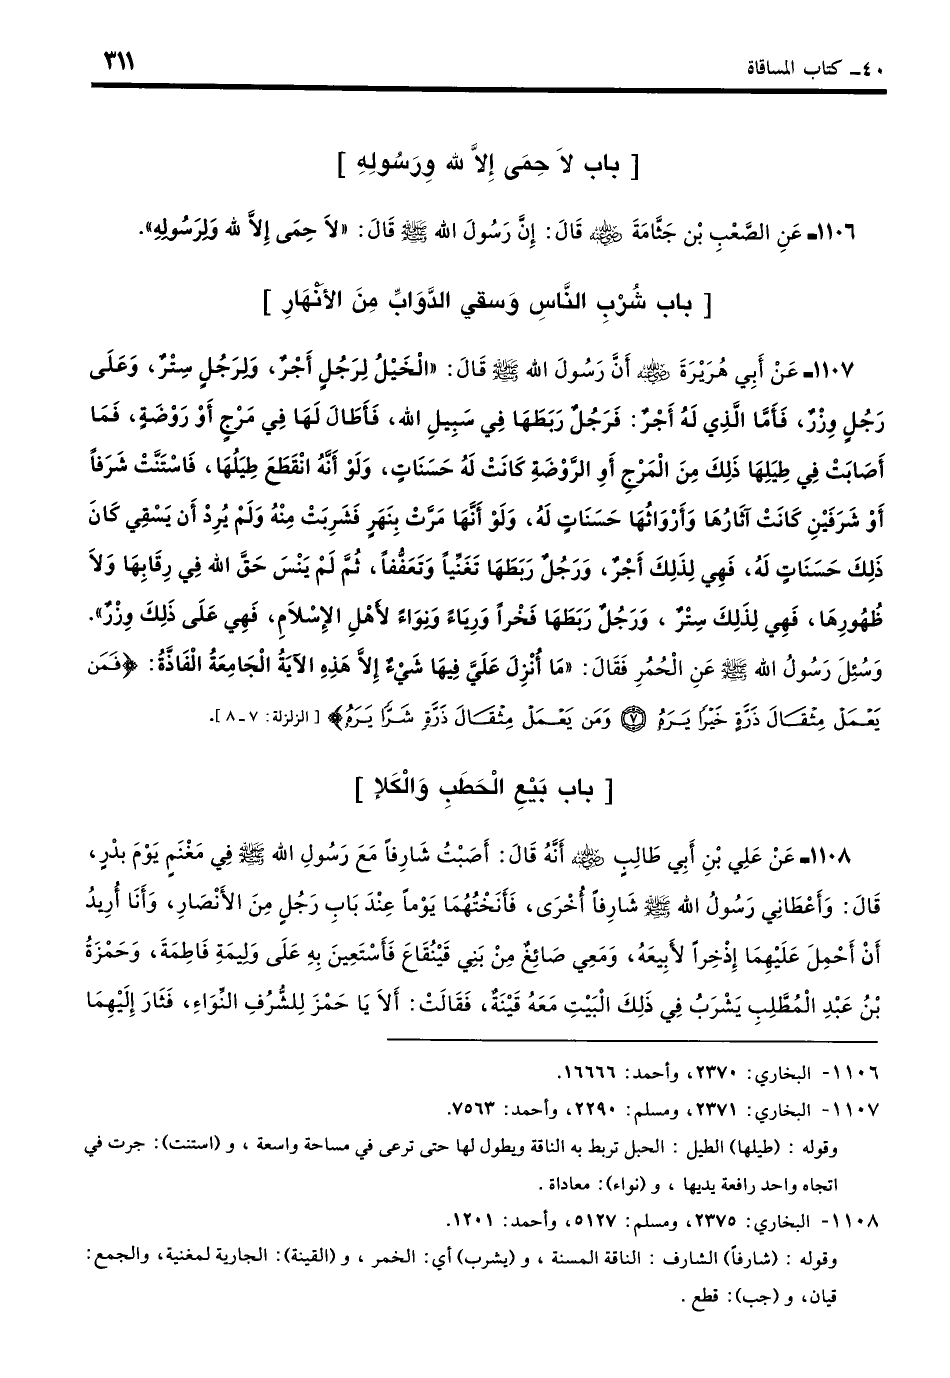 ٤٠ـ كتاب المساقاة
٣١١
[ باب لاَ حِمَى إِلاَّ لله ورَسُولِهِ ]
١١٠٦ـ عَنِ الصَّعْبِ بْنِ جَثَّامَةَ رضي الله عنه قَالَ: إِنَّ رَسُولَ الله ﷺ قَالَ: «لاَ حِمَى إِلاَّ لله وَلِرَسُولِهِ».
[ باب شُرْبِ النَّاسِ وَسقي الدَّوَابِّ مِنَ الأَنْهَارِ ]
١١٠٧ـ عَنْ أَبِي هُرَيْرَةَ رضي الله عنه أَنَّ رَسُولَ الله ﷺ قَالَ: «الْخَيْلُ لِرَجُلٍ أَجْرٌ، وَلِرَجُلٍ سِتْرٌ، وَعَلَى
رَجُلٍ وِزْرٌ، فَأَمَّا الَّذِي لَهُ أَجْرٌ: فَرَجُلٌ رَبَطَهَا فِي سَبِيلِ الله، فَأَطَالَ لَهَا فِي مَرْجٍ أَوْ رَوْضَةٍ، فَمَا
أَصَابَتْ فِي طِيَلِهَا ذَلِكَ مِنَ الْمَرْجِ أَوِ الرَّوْضَةِ كَانَتْ لَهُ حَسَنَاتٍ، وَلَوْ أَنَّهُ انْقَطَعَ طِيَلُهَا، فَاسْتَنَّتْ شَرَفاً
أَوْ شَرَفَيْنِ كَانَتْ آثَارُهَا وَأَرْوَاثُهَا حَسَنَاتٍ لَهُ، وَلَوْ أَنَّهَا مَرَّتْ بِنَهَرٍ فَشَرِبَتْ مِنْهُ وَلَمْ يُرِدْ أَن يَسْقِي كَانَ
ذَلِكَ حَسَنَاتٍ لَهُ، فَهِي لِذَلِكَ أَجْرٌ، وَرَجُلٌ رَبَطَهَا تَغَنِّياً وَتَعَفُّفاً، ثُمَّ لَمْ يَنْسَ حَقَّ الله فِي رِقَابِهَا وَلاَ
ظُهُورِهَا، فَهِي لِذَلِكَ سِتْرٌ، وَرَجُلٌ رَبَطَهَا فَخْراً وَرِيَاءً وَنِوَاءً لأَهْلِ الإِسْلاَمِ، فَهِي عَلَى ذَلِكَ وِزْرٌ».
وَسُئِلَ رَسُولُ الله ﷺ عَنِ الْحُمُرِ فَقَالَ: «مَا أُنْزِلَ عَلَيَّ فِيهَا شَيْءٌ إِلاَّ هَذِهِ الآيَةُ الْجَامِعَةُ الْفَاذَّةُ: ﴿فَمَن
يَعْمَلْ مِثْقَالَ ذَرَّةٍ خَيْرًا يَرَهُ ۝٧ وَمَن يَعْمَلْ مِثْقَالَ ذَرَّةٍ شَرًّا يَرَهُ﴾ [الزلزلة: ٧ـ٨].
[ باب بَيْعِ الْحَطَبِ وَالْكَلإِ ]
١١٠٨ـ عَنْ عَلِي بْنِ أَبِي طَالِبٍ رضي الله عنه أَنَّهُ قَالَ: أَصَبْتُ شَارِفاً مَعَ رَسُولِ الله ﷺ فِي مَغْنَمٍ يَوْمَ بدْرٍ،
قَالَ: وَأَعْطَانِي رَسُولُ الله ﷺ شَارِفاً أُخْرَى، فَأَنَخْتُهُمَا يَوْماً عِنْدَ بَابِ رَجُلٍ مِنَ الأَنْصَارِ، وَأَنَا أُرِيدُ
أَنْ أَحْمِلَ عَلَيْهِمَا إِذْخِراً لأَبِيعَهُ، وَمَعِي صَائِغٌ مِنْ بَنِي قَيْنُقَاعَ فَأَسْتَعِينَ بِهِ عَلَى وَلِيمَةِ فَاطِمَةَ، وَحَمْزَةُ
بْنُ عَبْدِ الْمُطَّلِبِ يَشْرَبُ فِي ذَلِكَ الْبَيْتِ مَعَهُ قَيْنَةٌ، فَقَالَتْ: أَلاَ يَا حَمْزَ لِلشُّرُفِ النِّوَاءِ، فَثَارَ إِلَيْهِمَا
١١٠٦- البخاري: ٢٣٧٠، وأحمد: ١٦٦٦٦.
١١٠٧- البخاري: ٢٣٧١، ومسلم: ٢٢٩٠، وأحمد: ٧٥٦٣.
وقوله : (طيلها) الطيل : الحبل تربط به الناقة ويطول لها حتى ترعى في مساحة واسعة ، و (استنت): جرت في
اتجاه واحد رافعة يديها ، و (نواء): معاداة .
١١٠٨- البخاري: ٢٣٧٥، ومسلم: ٥١٢٧، وأحمد: ١٢٠١.
وقوله : (شارفاً) الشارف : الناقة المسنة ، و (يشرب) أي: الخمر ، و (القينة): الجارية لمغنية، والجمع:
قيان، و (جب): قطع .